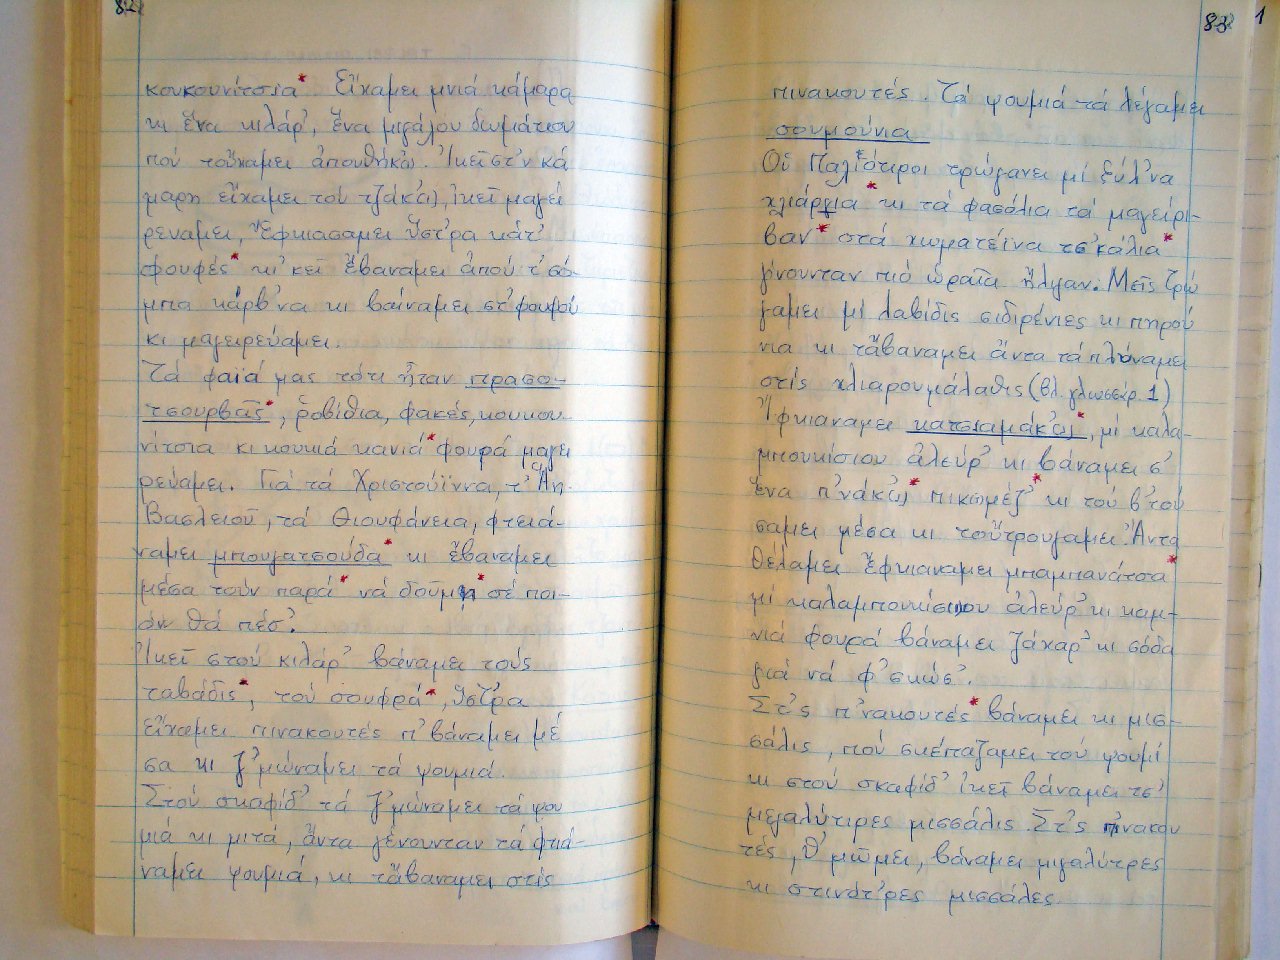 82
κουκουνίτσια*. Εἴχαμει μνιά κάμαρα
κι ἕνα κιλάρ', ἕνα μιγάλου δωμάτιου
πού τοὔχαμει ἀπουθήκ(ι). Ἰκεῖ στ'ν κά
μαρη εἴχαμει τού τζάκ(ι), ἰκεῖ μαγεί
ρευαμει, Ἔφκιασαμει ὕστ'ρα κάτ'
φουφές* κι' κεῖ ἔβαναμει ἀπού τ' σό-
μπα κάρβ'να κι βαίναμει στ' φουφού
κι μαγειρεύαμει.
Τά φαϊά μας τότι ἦταν πρασο-
τσουρβᾶς*, ροβίθια, φακές, κουκου-
νίτσια κι κουκιά κανιά* φουρά μαγει
ρεύαμει. Γιά τά Χριστούϊννα, τ' Ἁη-
Βασλειοῦ, τά Θιουφάνεια, φτειά-
ναμει μπουγατσούδα* κι ἔβαναμει
μέσα τούν παρά* νά δοῦμη* σέ ποι-
όν θά πέσ'.
Ἰκεῖ στού κιλάρ' βάναμει τούς
ταβάδις*, τού σουφρά*, ὕστ'ρα
εἴχαμει πινακουτές π' βάναμει μέ
σα κι ζ'μώναμει τά ψουμιά.
Στού σκαφίδ' τά ζ'μώναμει τά ψου
μιά κι μιτά, ἄντα γένουνταν τά φτιά-
ναμει ψουμιά, κι τἄβαναμει στίς
83 1
πινακουτές. Τά ψουμιά τά λέγαμει
σουμούνια
Οἱ Παλιότιροι τρώγανει μί ξύλ'να
χλιάργια* κι τά φασόλια τά μαγείρι-
βαν* στά χωματέϊνα τσ'κάλια*
γίνουνταν πιό ὡραῖα ἔλιγαν. Μεῖς τρώ
γαμει μί λαβίδις σιδιρένιες κι πηρού
νια κι τἄβαναμει ἄντα τά πλύναμει
στίς χλιαρουμάλαθις (βλ. γλωσσάρ. 1)
Ἔφκιαναμει κατσιαμάκ(ι)*, μί καλα-
μπουκίσιου ἀλεύρ' κι βάναμει σ'
ἕνα π'νάκ(ι)* πικιμέζ'* κι τού β'τού
σαμει μέσα κι τοὔτρουγαμει. Ἄντα
θέλαμει ἔφκιαναμει μπαμπανάτσα*
μί καλαμπουκίσιου ἀλεύρ' κι καμ-
νιά φουρά βάναμει ζάχαρ' κι σόδα
γιά νά φ'σκώσ'.
Στ'ς π'νακουτές* βάναμει κι μισ-
σάλις, πού σκέπαζαμει τού ψουμί
κι στού σκαφίδ' ἰκεῖ βάναμει τσ'
μεγαλύτιρες μισσάλις. Στ'ς π'νακου
τές, θ'μῶμει, βάναμει μιγαλύτρες
κι στινότ'ρες μισσάλες.